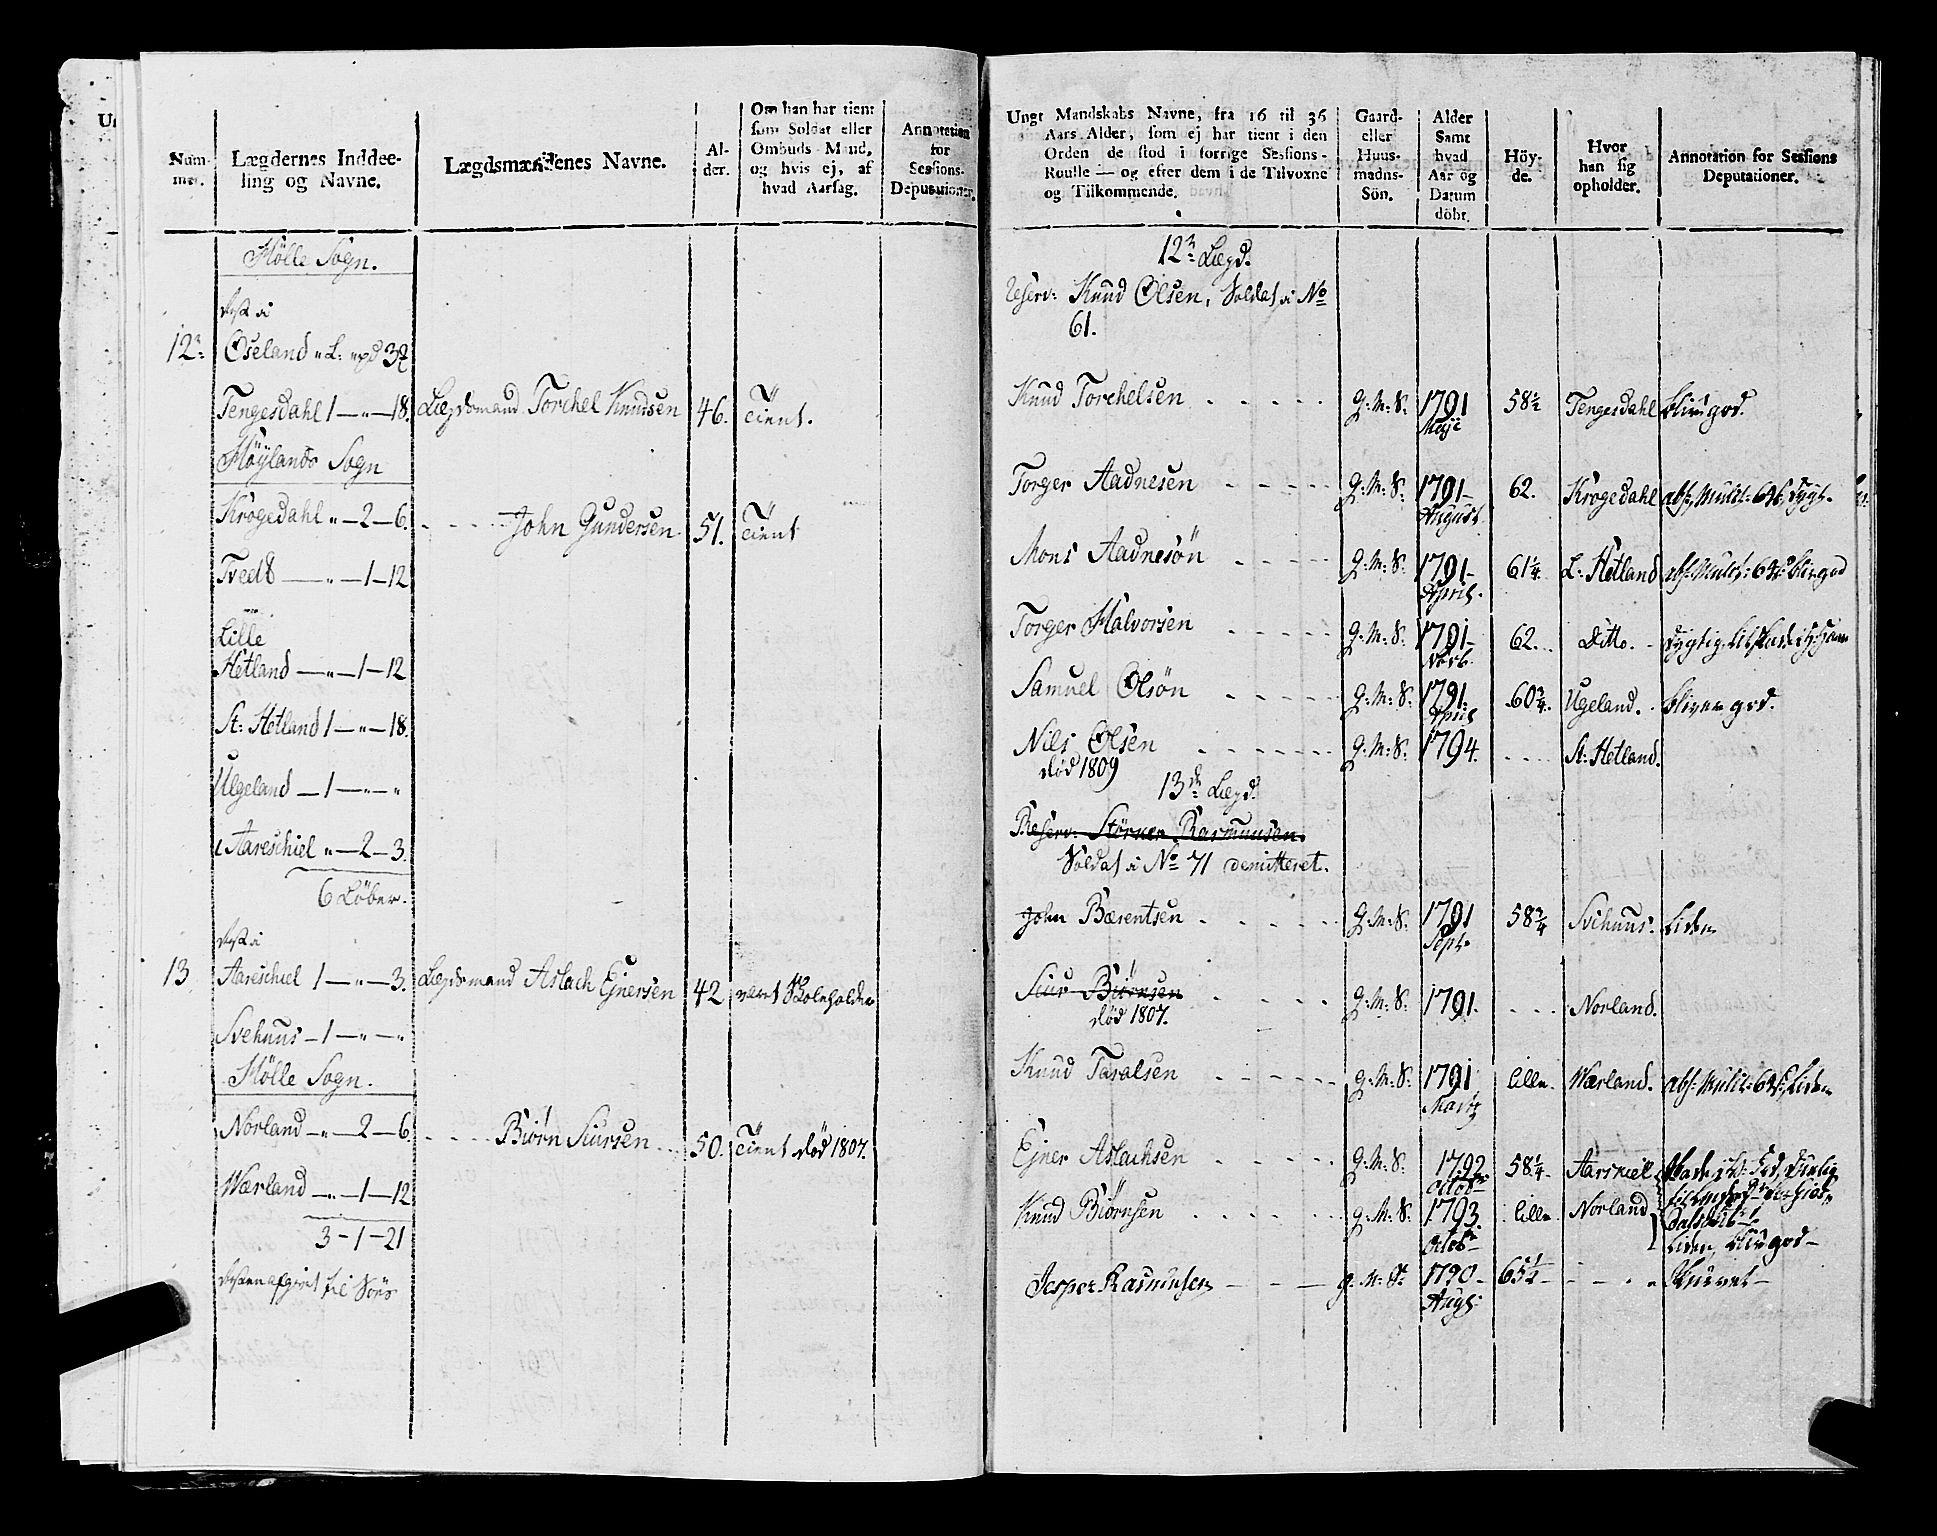 Num-
mer.
Lægdernes Inddee-
ling og Navne.
Lægdsmændenes Navne.
Al-
der.
Om han har tient
som Soldat eller
Ombuds Mand,
og hvis ej, af
hvad Aarsag.
Annotation
for
Sessions-
Deputationer.
Hølle Sogn.
12te
Øseland
Tengesdahl 1 — " — 18.
Lægdsmand Torchel Knudsen 46. Tient.
Höylands Sogn
Krogedahl " — 2 — 6.
John Gundersen 51. Tient
Tvedt — " — 1 — 12
Lille
Hetland — " — 1 — 12
St: Hetland 1 — " — 18.
Ulgeland — 1 — " — "
Aareschiel " — 2 — 3.
6 Løber.
13 Aareschiel 1 — " — 3. Lægdsmand Aslach Ejnersen 42 været Skoleholder
Svehuus — 1 — " — "
Hölle Sogn.
Norland — " — 2 — 6. Biörn Siursen 50. Tient død 1807.
Wærland — " — 1 — 12
3 — 1 — 21
Ungt Mandskabs Navne, fra 16 til 36
Aars Alder, som ej har tient i den
Orden de stod i forrige Sessions-
Roulle — og efter dem i de Tilvoxne
og Tilkommende.
Gaard-
eller
Huus-
mands-
Sön.
Alder
Samt
hvad
Aar og
Datum
döbt.
Höy-
de.
Hvor
han sig
opholder.
Annotation for Sessions
Deputationer.
12te Lægd.
Reserv: Knud Olsen, Soldat i No
61.
Knud Torchelsen G: M: S. 1791 58½ Tengesdahl bliver god.
Maji
Torger Aadnesen G: M: S. 1791 — 62. Krogedahl
August
Mons Aadnesön G: M: S. 1791 — 61¼ L: Hetland
April.
Torger Halvorsen G: M: S. 1791 — 62. Ditto.
Novb.
Samuel Olsön G: M: S. 1791. 60¾. Ugeland. bliver god.
April
Nils Olsen G: M: S. 1794. St: Hetland.
död 1809
13de Lægd.
Reserv: Störker Rasmusen.
Soldat i No 71 demitteret.
John Bærentsen G: M: S. 1791 58¾ Svehuus. Liden
Sept.
Siur Biörnsen G: M: S. 1791. Norland.
död 1807.
Knud Taralsen G: M: S. 1791 lille. Wærland.
Martz
Ejner Aslachsen G: M: S. 1792 58¼. Aarskiel
Octob
Knud Biörnsen G: M: S. 1793. lille Norland
Octob
Liden, bliver god —
Jesper Rasmusen G: M: S. 1790 — 65½ —
Aug: